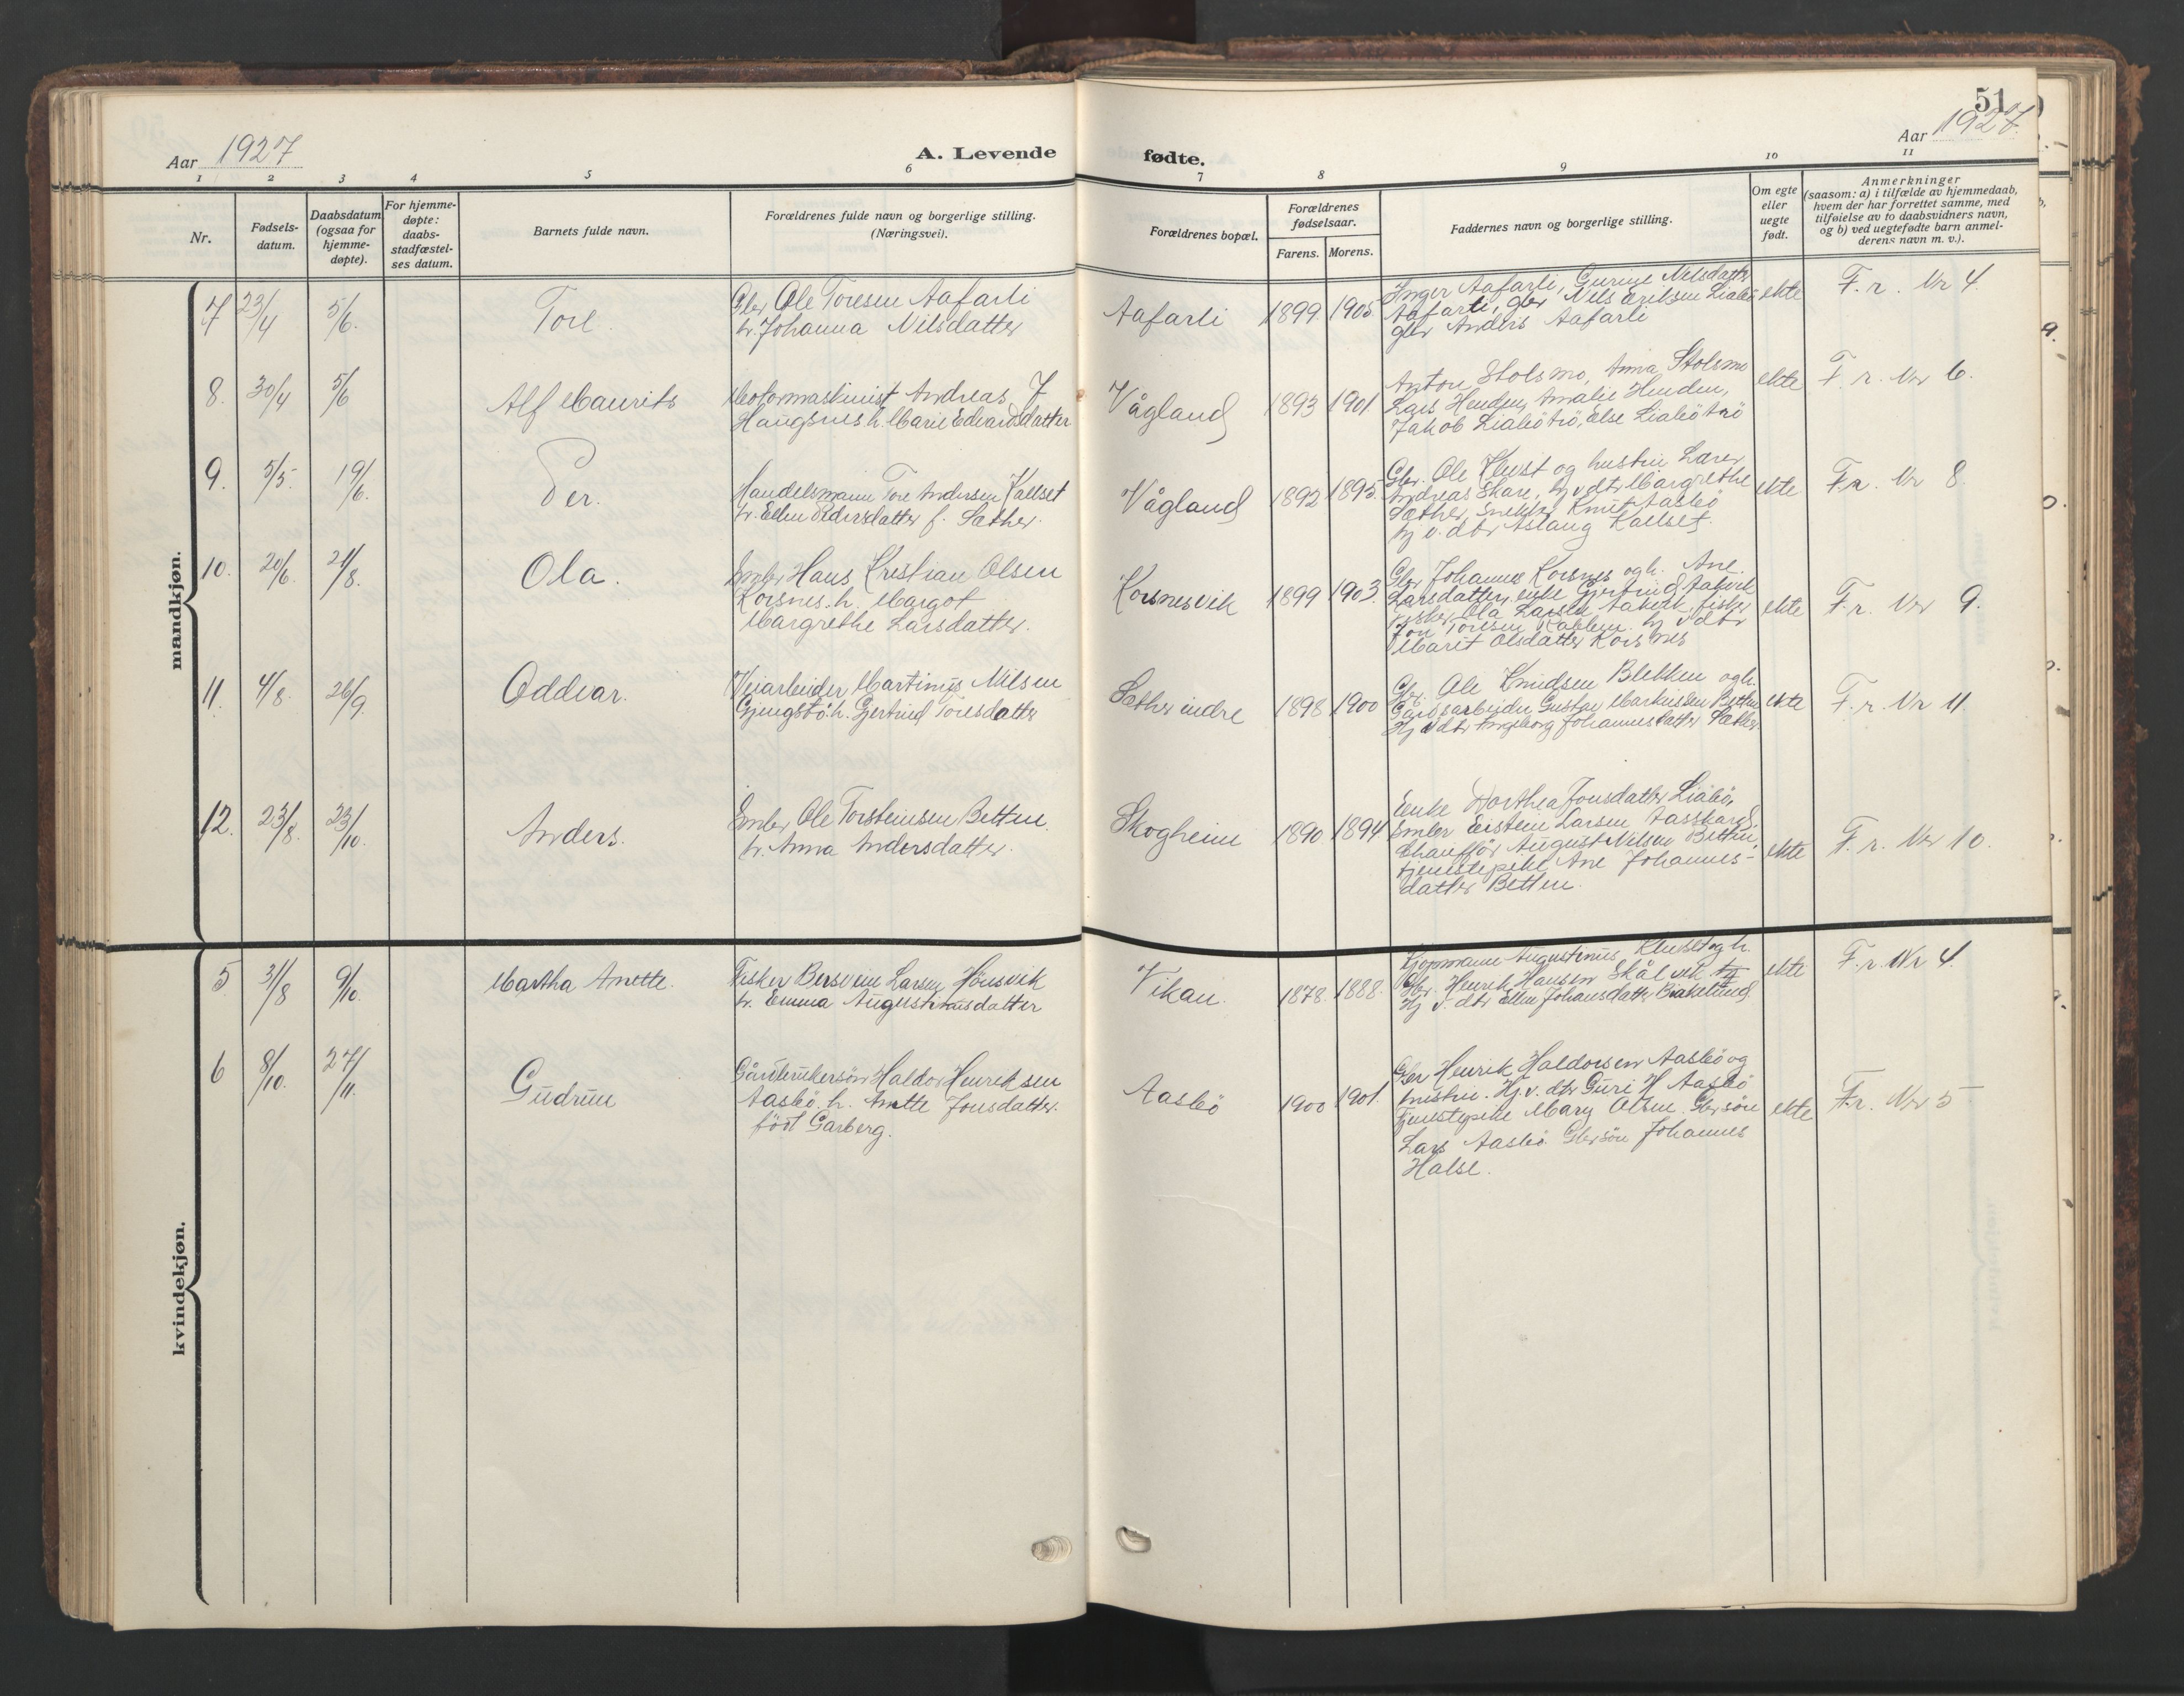 51
Aar 1927
A. Levende
fødte.
Aar 1927.
1 2 3 4 5 6 7 8 9 10 11
Nr.
Fødsels-
datum.
Daabsdatum
(ogsaa for
hjemme-
døpte).
For hjemme-
døpte:
daabs-
stadfæstel-
ses datum.
Barnets fulde navn.
Forældrenes fulde navn og borgerlige stilling.
(Næringsvei).
Forældrenes bopæl.
Forældrenes
fødselsaar.
Farens. Morens.
Faddernes navn og borgerlige stilling.
Om egte
eller
uegte
født.
Anmerkninger
(saasom: a) i tilfælde av hjemmedaab,
hvem der har forrettet samme, med
tilføielse av to daabsvidners navn,
og b) ved uegtefødte barn anmel-
derens navn m. v.).
mandkjøn.
7 23/4 5/6. Tore.
Gbr Ole Toresen Aafarli
h. Johanna Nilsdatter
Aafarli 1899 1905
Inger Aafarli, Gurine Nilsdatter
Aafarli, gbr Nils Eriksen Liabö
gbr Anders Aafarli
ekte F. r. Nr 4.
8. 30/4 5/6 Alf Maurits
Motormaskinist Andreas J
Haugsnes h. Marie Edvardsdatter
Vågland 1893 1901
Anton Stolsmo, Anna Stolsmo
Lars Henden, Amalie Henden,
Jakob Liabötrö, Else Liabötrö
ekte F. r. Nr 6.
9. 5/5. 19/6. Per.
Handelsmann Tore Andersen Kallset
h. Ellen Pedersdatter f. Sæther.
Vågland 1892 1895.
Gbr. Ole Kleist og hustru Lærer
Andreas Skare, hj v. dtr Margrethe
Sæther, snekker Knut Aasbö
hj v. dtr Aslaug Kallset.
ekte F. r. Nr 8.
10. 20/6. 21/8. Ola.
Embr Hans Kristian Olsen
Korsnes. h. Margot
Margrethe Larsdatter.
Korsnesvik 1899 1903.
Gbr Johannes Korsnes og h. Ane
Larsdatter, enke Gjertrud Aakvik
fisker Ola Larsen Aakvik, fisker
Jon Toresen hj v dtr
Marit Olsdatter Korsnes
ekte F. r. Nr 9.
11. 4/8. 26/9. Oddvar.
Veiarbeider Martinus Nilsen
Gjengstö. h. Gjertrud Toresdatter
Sæther indre 1898 1900
Gbr. Ole Knudsen Blekken og h.
Gardsarbeider Gustav Markussen Betten
Hj v dtr Ingeborg Johannesdatter Sæther.
ekte F. r. Nr 11.
12. 23/8. 23/10. Anders.
Embr Ole Torsteinsen Betten.
h. Anna Andersdatter.
Skogheim 1890 1894
Enke Dorthea Jonsdatter Liabö,
Embr Eistein Larsen Aasskard,
Chaufför August Nilsen Betten,
tjenestepike Ane Johannes-
datter Betten.
ekte F. r. Nr 10.
kvindekjøn.
5. 31/8 9/10. Martha Anette.
Fisker Bersvein Larsen Hönsvik
h. Emma Augustinusdatter
Vikan. 1878. 1888.
Kjöpmann Augustinus Kleiset og h.
Gbr. Henrik Hansen Skålvik
Hj v. dtr Ellen Johansdatter
ekte F. r. Nr 4.
6 8/10. 27/11. Gudrun
Gårdbrukersön Haldor Henriksen
Aasbö. h. Anette Jonsdatter.
född Garberg.
Aasbö 1900 1901.
Gbr Henrik Haldorsen Aasbö og
hustru. Hj. v. dtr Guri H Aasbö
Tjenestepike Mary Olsen. Gbrsön
Lars Aasbö. Gbrsön Johannes
Halse.
ekte F. r. Nr 5